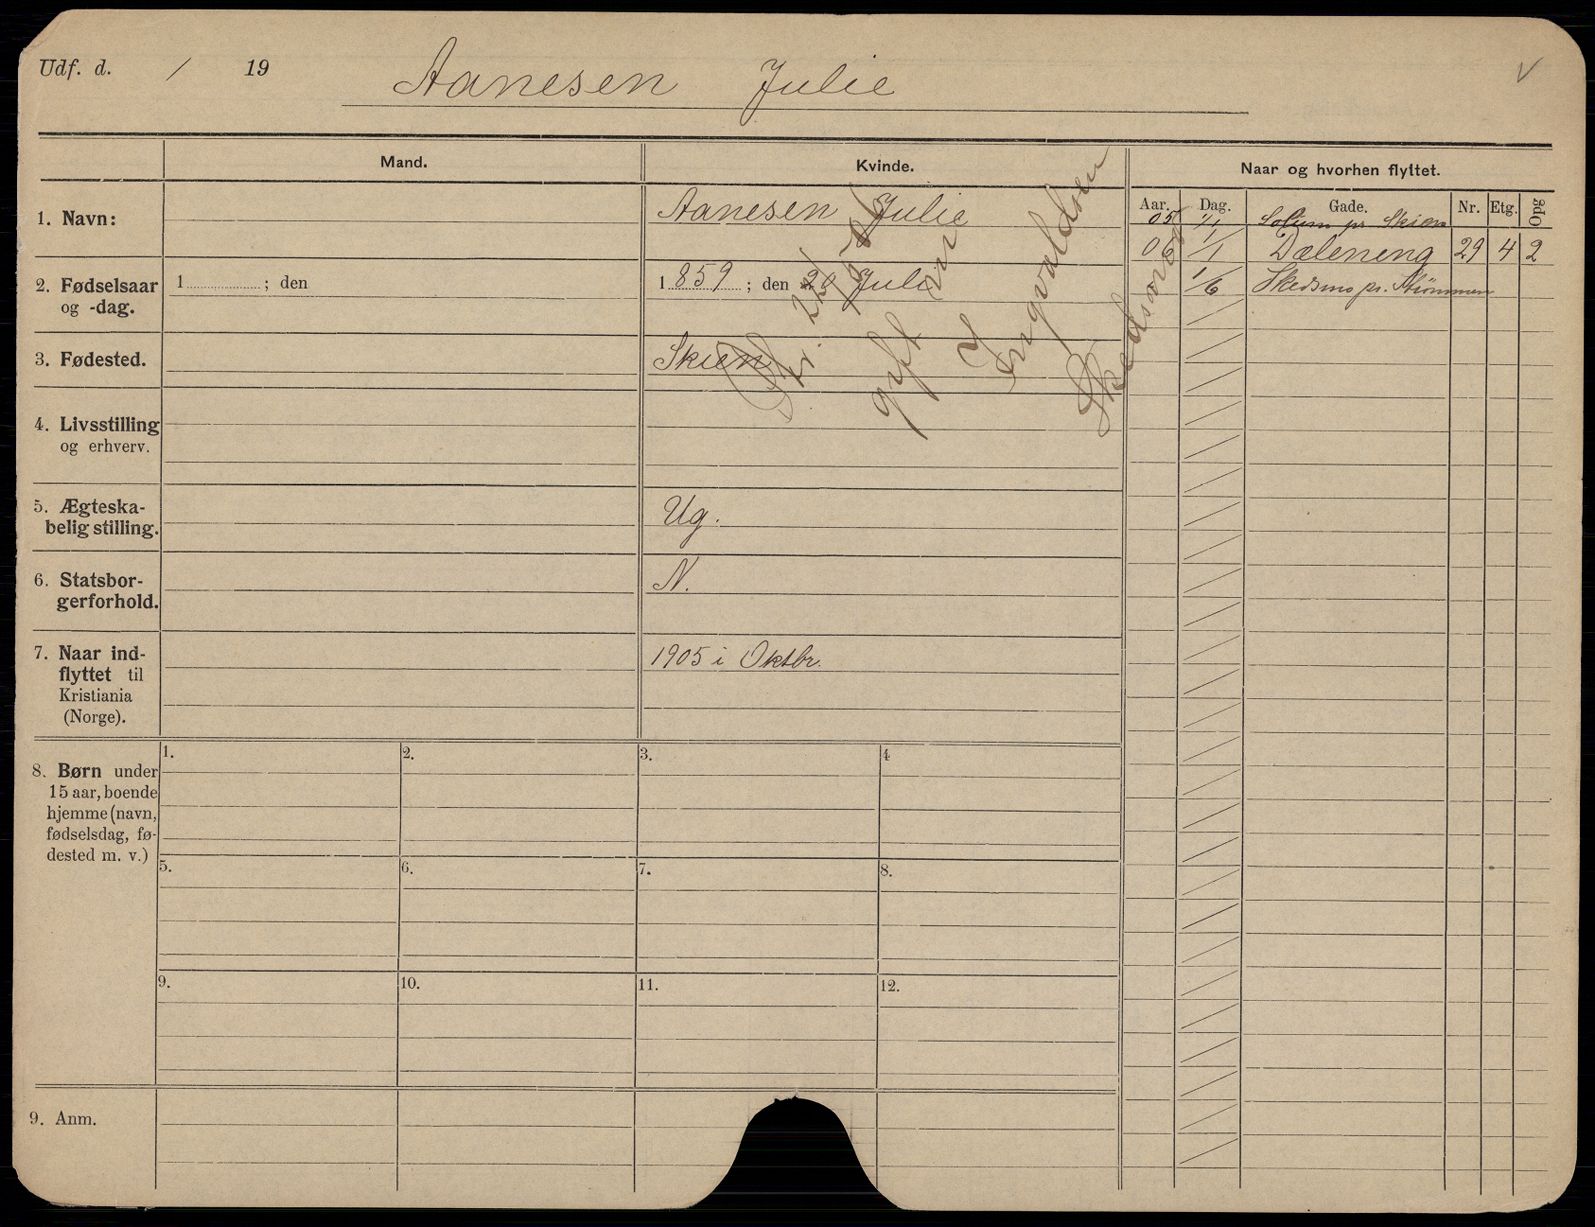 Udf. d. / 19 Aanesen Julie V
Mand. Kvinde. Naar og hvorhen flyttet.
Aar. Dag. Gade. Nr. Etg. Opg
1. Navn: Aanesen Julie
05 1/1 Solum pr Skien
06 1/1 Dæleneng 29 4 2
1/6 Skedsmo pr. Strømmen
2. Fødselsaar og -dag. 1 ; den 1859 ; den Juli
3. Fødested. Skien
gift m
Ingvaldsen
4. Livsstilling
og erhverv.
5. Ægteska-
belig stilling. Ug.
6. Statsbor-
gerforhold. N.
7. Naar ind-
flyttet til
Kristiania
(Norge). 1905 i Oktbr.
8. Børn under
15 aar, boende
hjemme (navn,
fødselsdag, fø-
dested m. v.)
1. 2. 3. 4
5. 6. 7. 8.
9. 10. 11. 12.
9. Anm.